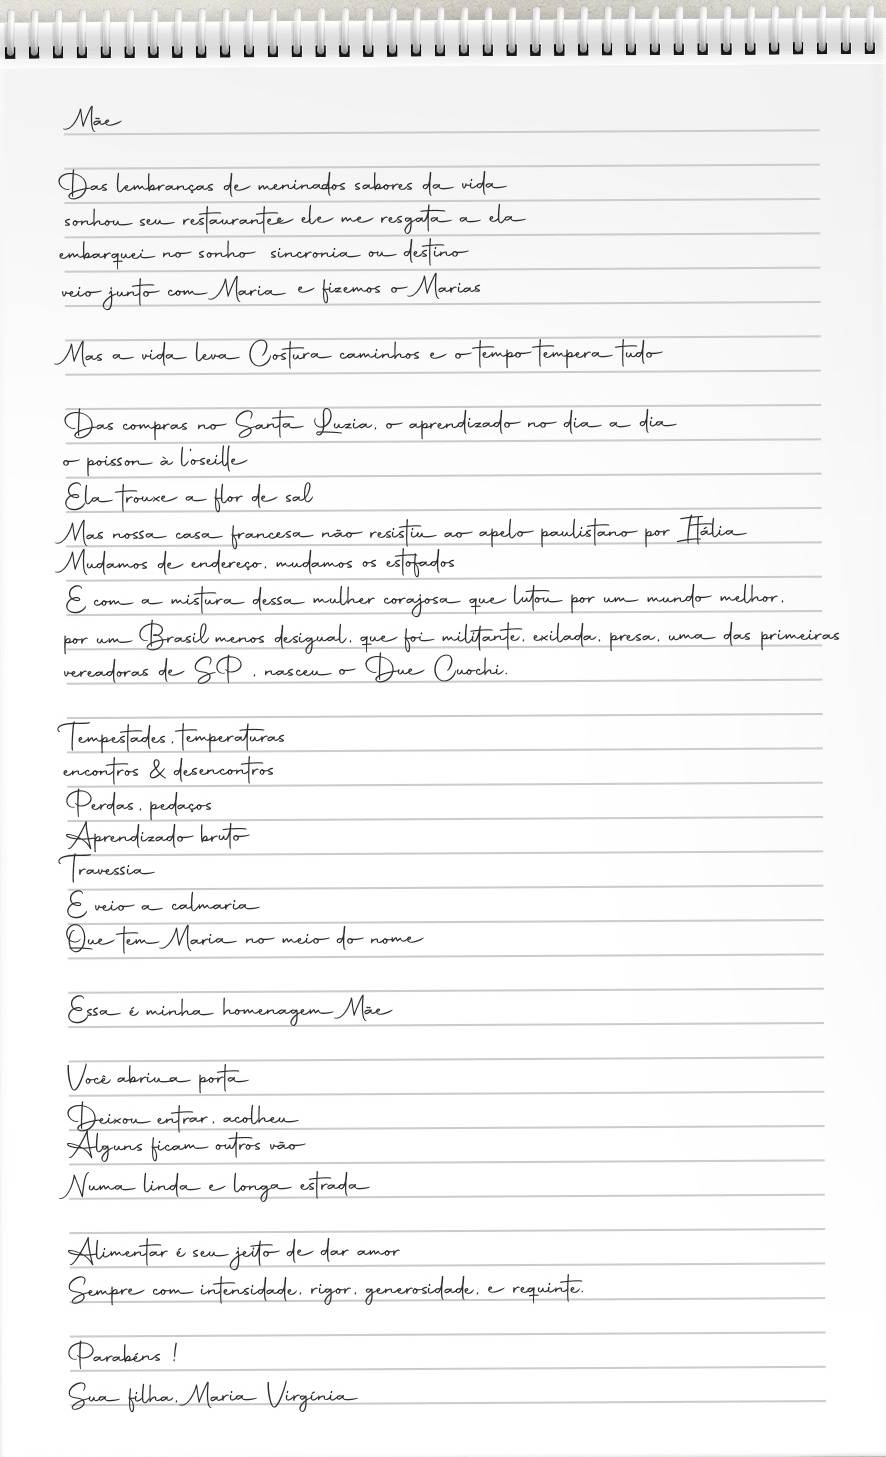 Mãe
Das lembranças de meninados sabores da vida
sonhou seu restaurantee ele me resgata a ela
embarquei no sonho sincronia ou destino
veio junto com Maria e fizemos o Marias
Mas a vida leva Costura caminhos e o tempo tempera tudo
Das compras no Santa Luzia, o aprendizado no dia a dia
o poisson à l'oseille
Ela trouxe a flor de sal
Mas nossa casa francesa não resistiu ao apelo paulistano por Itália
Mudamos de endereço, mudamos os estofados
E com a mistura dessa mulher corajosa que lutou por um mundo melhor,
por um Brasil menos desigual, que foi militante, exilada, presa, uma das primeiras
vereadoras de SP , nasceu o Due Cuochi.
Tempestades, temperaturas
encontros & desencontros
Perdas, pedaços
Aprendizado bruto
Travessia
E veio a calmaria
Que tem Maria no meio do nome
Essa é minha homenagem Mãe
Você abriua porta
Deixou entrar, acolheu
Alguns ficam outros vão
Numa linda e longa estrada
Alimentar é seu jeito de dar amor
Sempre com intensidade, rigor, generosidade, e requinte.
Parabéns !
Sua filha, Maria Virgínia